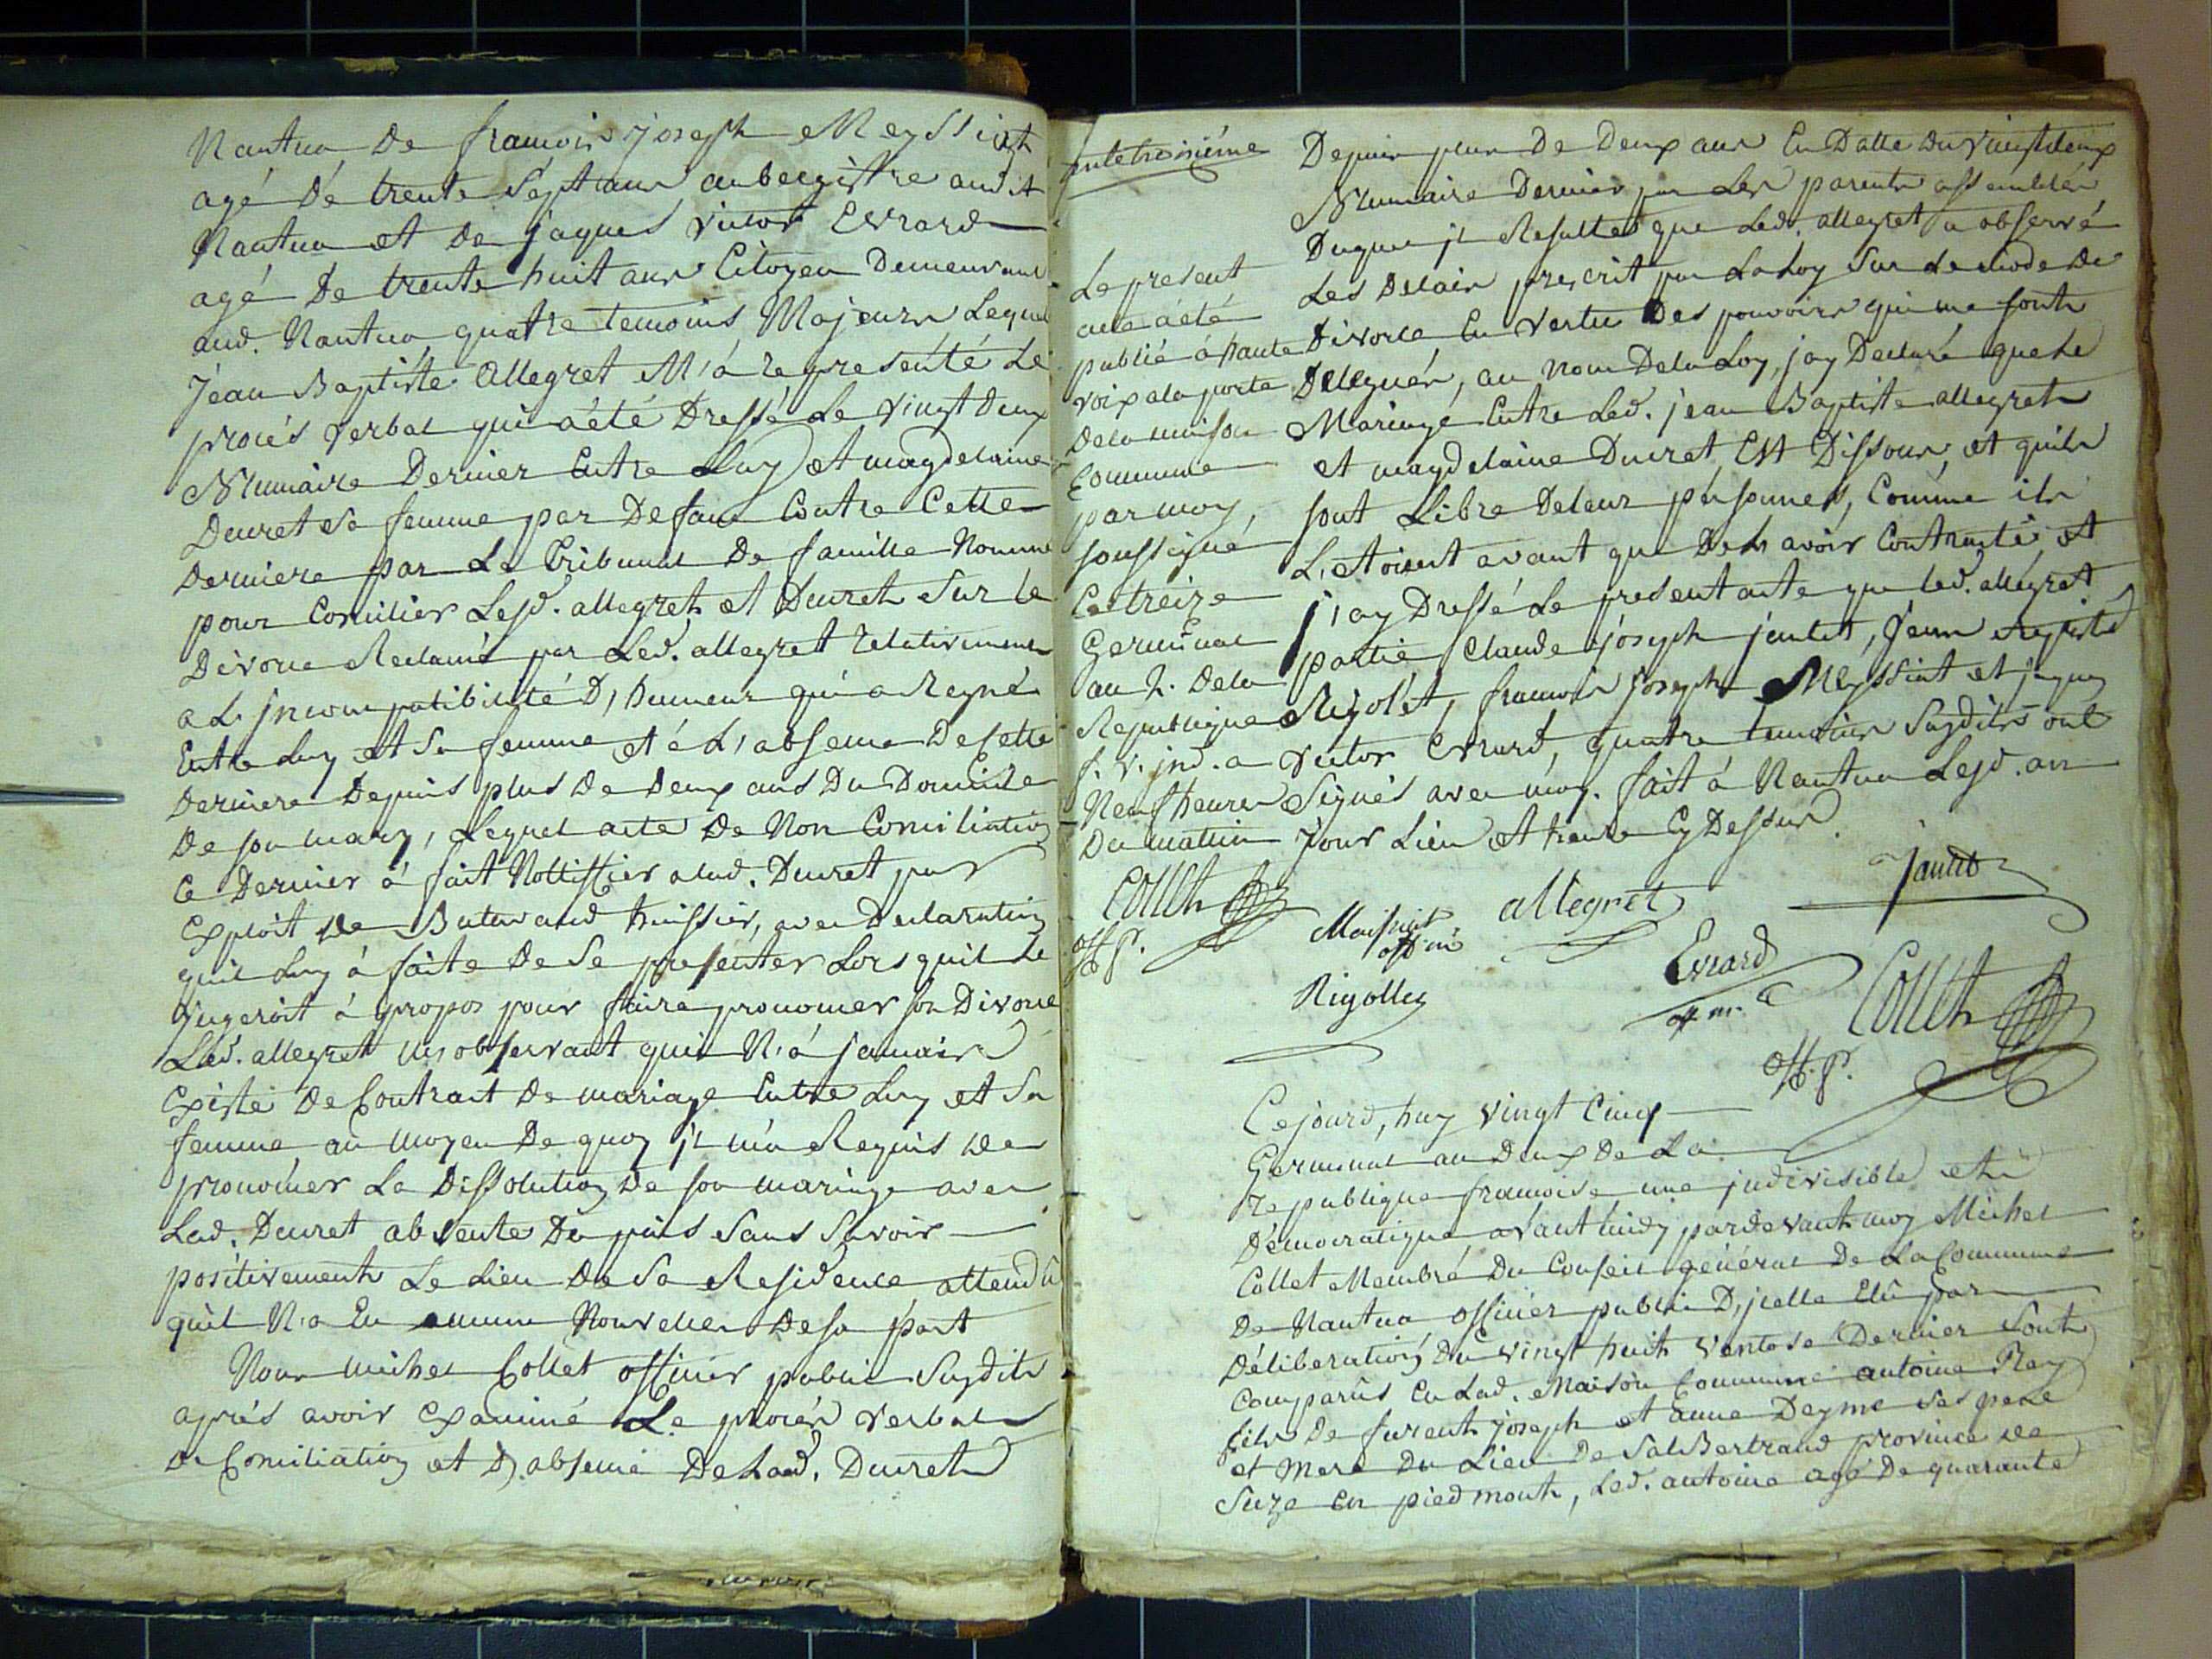 Nantua De francois joseph Meyssiat
agé De trente Sept ans aubergistre audit
Nantua et De jaques victor Evrard
agé De trente huit ans Citoyen Demeurant
aud. Nantua quatre temoins Majeurs Lequel
Jean Baptiste Allegret M'à representé Le
procés verbal qui a été Dressé Le vingt Deux
Nivmaire Dernier Entre Luy et magdelaine
Ducret Sa femme par Defaut Contre Cette
Derniere par Le Tribunal De famille Nommé
pour Concilier Lesd. allegret et Ducret Sur le
Divorce Reclamé par Led. allegret relativement
a L'jncompatibilité D'humeur qui a Regné
Entre Luy et Sa femme et é L'absence De Cette
Derniere Depuis plus De Deux ans Du Domicile
De son mary, Lequel acte De Non Conciliation
Ce Dernier à fait Nottiffier alad. Ducret par
Exploit De huissier, avec Declaration
quil Luy à faite De Se presenter Lors quil Le
jugeroit à propos pour faire prononcer son Divorce
Led. allegret m'observant quil N'à jamais
Existé De Contract De mariage Entre Luy et Sa
femme au moyen De quoy jl m'a Requis De
prononcer La Dissolution De son mariage avec
Lad. Ducret absente Depuis Sans Savoir
positivement Le Lieu De Sa Residence attendû
quil N'a Eu aucune Nouvelles De Sa part
Nous michel Collet officier public Susdit
aprés avoir Examiné Le procés verbal
De Conciliation et D'absence De Lad. Ducret
Depuis plus De Deux ans En Datte Du vingt deux
Nivmaire Dernier par Les parents assemblés
Duquel jl Resulte que Led. allegret a observé
Les Delais prescrit par La Loy Sur Le mode De
Divorce En vertu Des pouvoirs qui me sont
Delegués, au Nom De la Loy, jay Declaré que Le
Mariage Entre Led. jean Baptiste allegret
et magdelaine Ducret Est Dissous, et quils
sont Libre De leur personnes, Comme ils
L'étoient avant que De L'avoir Contracté, et
j'ay Dressé Le present acte que led. allegret
partie Claude joseph jantet, jean
Rigolet, francois joseph Meyssiat et jaques
Victor Evrard, quatre temoins Susdits ont
Signés avec moy. fait à Nantua Lesd. an
jour Lieu et heure Cy Dessus
Le present
acte a été
publié á haute
voix a la porte
De la maison
Commune
par moy,
soussigné
Ce treize
Germinal
an 2. De la
Republique
f. v. jnd. a
Neuf heures
Du matin
Collet
off. p.
allegret
Jantet
Rigollet
Evrard
Collet
off. p.
Cejourd'huy vingt Cinq
Germinal an Deux De La
republique francoise une jndivisible et
Démocratique avant midy pardevant moy Michel
Collet Membre Du Conseil général De La Commune
De Nantua officier public D'jcelle Elû par
Déliberation Du vingt huit ventose Dernier Sont
Comparûs En Lad. Maison Commune antoine Rey
fils De furent joseph et anne Deyme ses pere
et Mere Du Lieu De SalBertrand province De
Suze En piedmont, Led. antoine agé De quarante